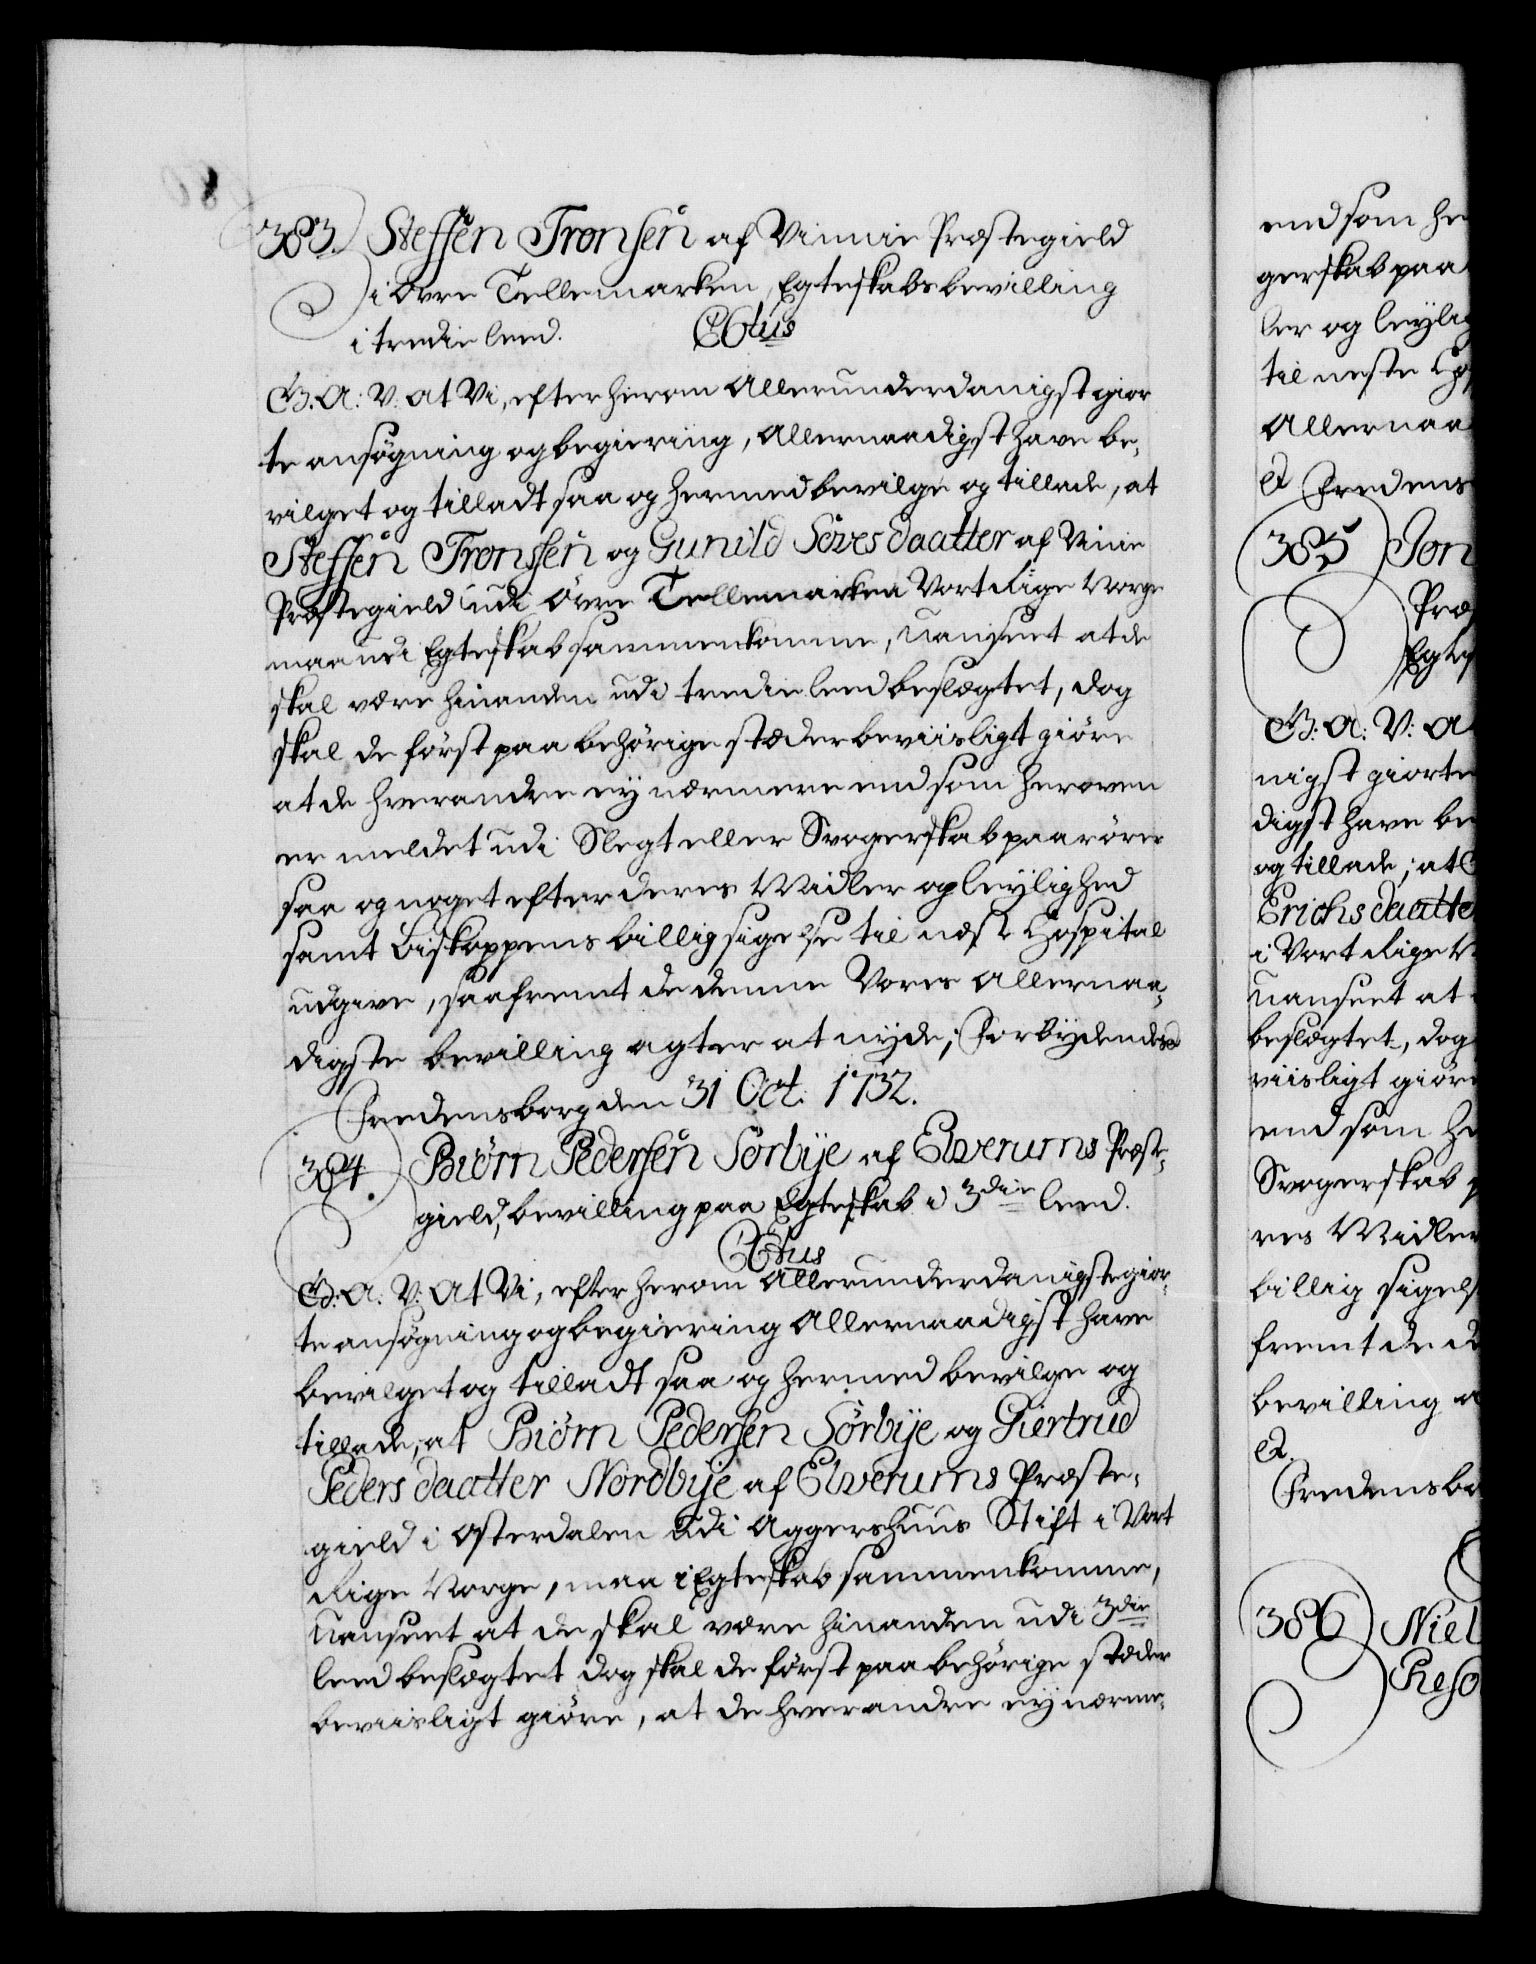 383. Steffen Tronsen af Vinnie Præstegield
i øvre Tellemarken, Egteskabsbevilling
i tredie leed. Ctus
G. A: V. At Vi, efter herom Allerunderdanigst gior
te ansøgning og begiering, Allernaadigst have be-
vilget og tilladt saa og hermed bevilge og tillade, at
Steffen Tronssen og Gunild Søvesdaatter af Vinie
Præstegield udi øvre Tellemarken Vort Rige Norge
maa udi Egteskab sammenkomme, uanseet at de
skal være hinanden udi tredie leed beslægtet, dog
skal de først paa behørige stæder beviisligt giøre
at de hverandre ey nærmere end som heroven
er meldet udi Slegt eller Svogerskab paarører
saa og noget efter deres Midler og leylighed
samt Biskoppens billig sigelse til næste Hospital
udgive, saafremt de denne Vores Allernaa-
digste bevilling agter at nyde; Forbydendes
Fredensborg den 31 Oct. 1732.
384. Biørn Pedersen Sørbye af Elverums Præste-
gield, bevilling paa Egteskab i 3die leed.
Ctus
G: A: V: At Vi, efter herom Allerunderdanigste gior-
te ansøgning og begiering Allernaadigst have
bevilget og tilladt saa og hermed bevilge og
tillade, at Biørn Pedersen Sørbye og Giertrud
Peders daatter Nordbye af Elverums Præste-
gield i Østerdalen udi Aggershuus Stift i Vort
Rige Norge, maa i Egteskab sammenkomme,
Uanseet at de skal være hinanden udi 3die
leed beslægtet dog skal de først paa behørige stæder
beviisligt giøre, at de hverandre ey nærme-
end som he
gerskab paa
ler og leylig
til neste
Allernaa
Fredens
385 Jon
Præs
Egtes
G: A: V: A
nigst giorte
digst have be
og tillade; at
Erichsdaatte
i Vort Rige
Uanseet at
beslægtet, dog
viisligt giøre
end som he
Svogerskab p
res Midler
billig sigels
fremt de d
bevilling a
Fredensbo
386 Niel
Reso